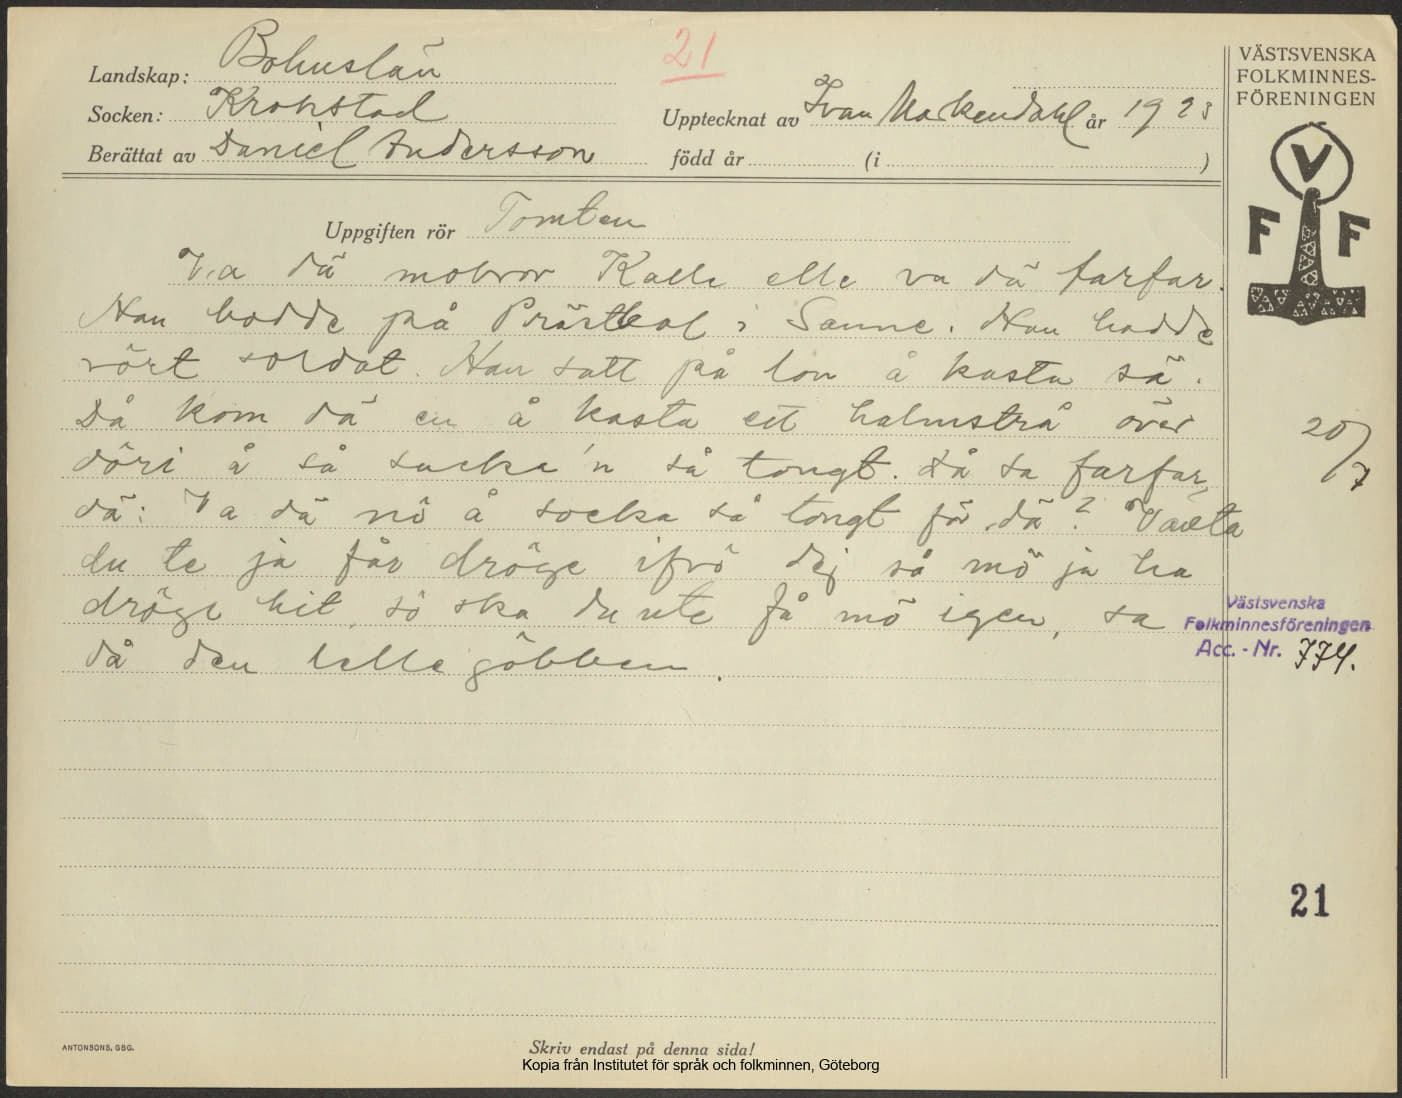 Landskap: Bohuslän
21
VÄSTSVENSKA
FOLKMINNES-
FÖRENINGEN
Socken: Krokstad
Upptecknat av Ivar Markendahl år 1923
Berättat av Daniel Andersson
född år (i )
V
F F
Uppgiften rör Tomten
Va dä mobror Kalle elle va dä farfar.
Han bodde på Prästbol i Sanne. Han hadde
vört soldat. Han satt på lon å kasta sä.
Då kom dä en å kasta ett halmstrå över
döri å så sucka'n så tongt. Då sa farfar
dä: Va dä nö å socka så tongt för dä? Vänta
du te ja får dröge ifrö dej så mö ja ha
dröge hit, sö ska du nte få mö igen, sa
då den lelle göbben.
20/7
Västsvenska
Folkminnesföreningen
Acc. - Nr. 774.
21
ANTONSONS, GBG.
Skriv endast på denna sida!
Kopia från Institutet för språk och folkminnen, Göteborg